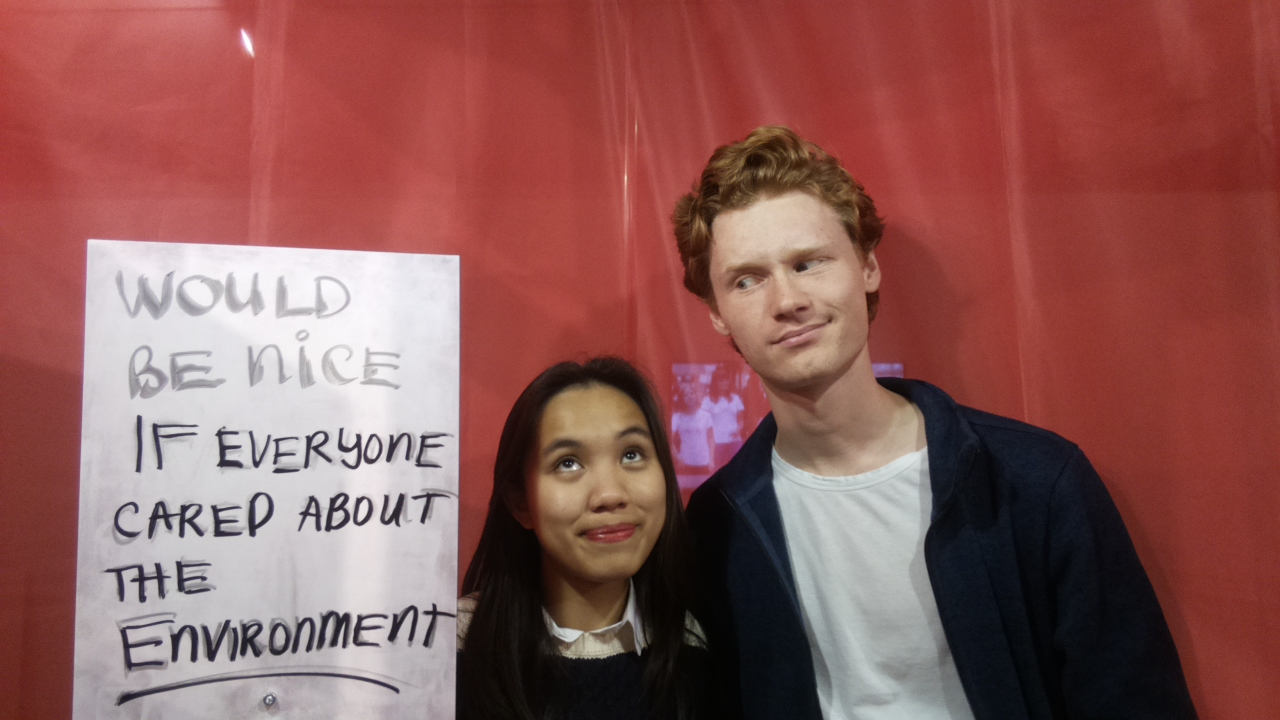 WOULD
BE NiCE
IF EVERYONE
CARED ABOUT
THE
ENVIRONMENT